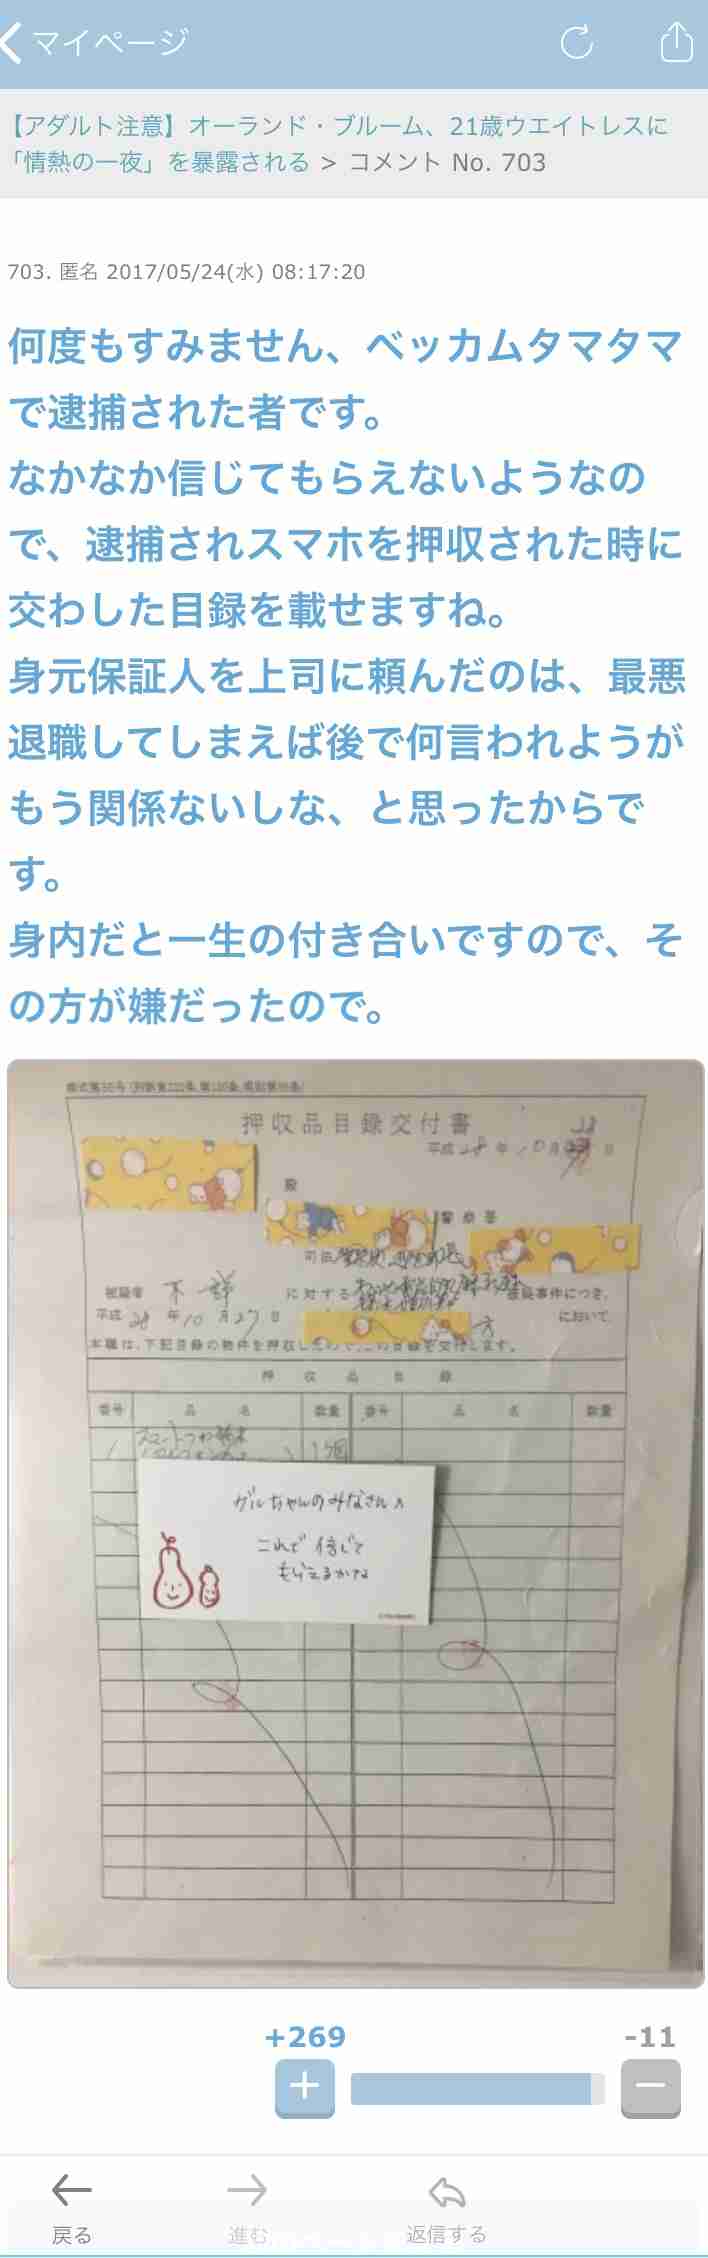 マイページ
【アダルト注意】オーランド・ブルーム、21歳ウエイトレスに
「情熱の一夜」を暴露される > コメント No. 703
703. 匿名 2017/05/24(水) 08:17:20
何度もすみません、ベッカムタマタマ
で逮捕された者です。
なかなか信じてもらえないようなの
で、逮捕されスマホを押収された時に
交わした目録を載せますね。
身元保証人を上司に頼んだのは、最悪
退職してしまえば後で何言われようが
もう関係ないしな、と思ったからで
す。
身内だと一生の付き合いですので、そ
の方が嫌だったので。
押収品目録交付書
平成28年10月 日
殿
警察署
司法
被疑者 不詳 に対する 被疑事件につき、
平成28年10月27日 方 において
本職は、下記目録の物件を押収したので、この目録を交付します。
押収品目録
番号 品名 数量 番号 品名 数量
1 1個
ガルちゃんのみなさんへ
これで信じて
もらえるかな
+269 -11
戻る 進む 返信する